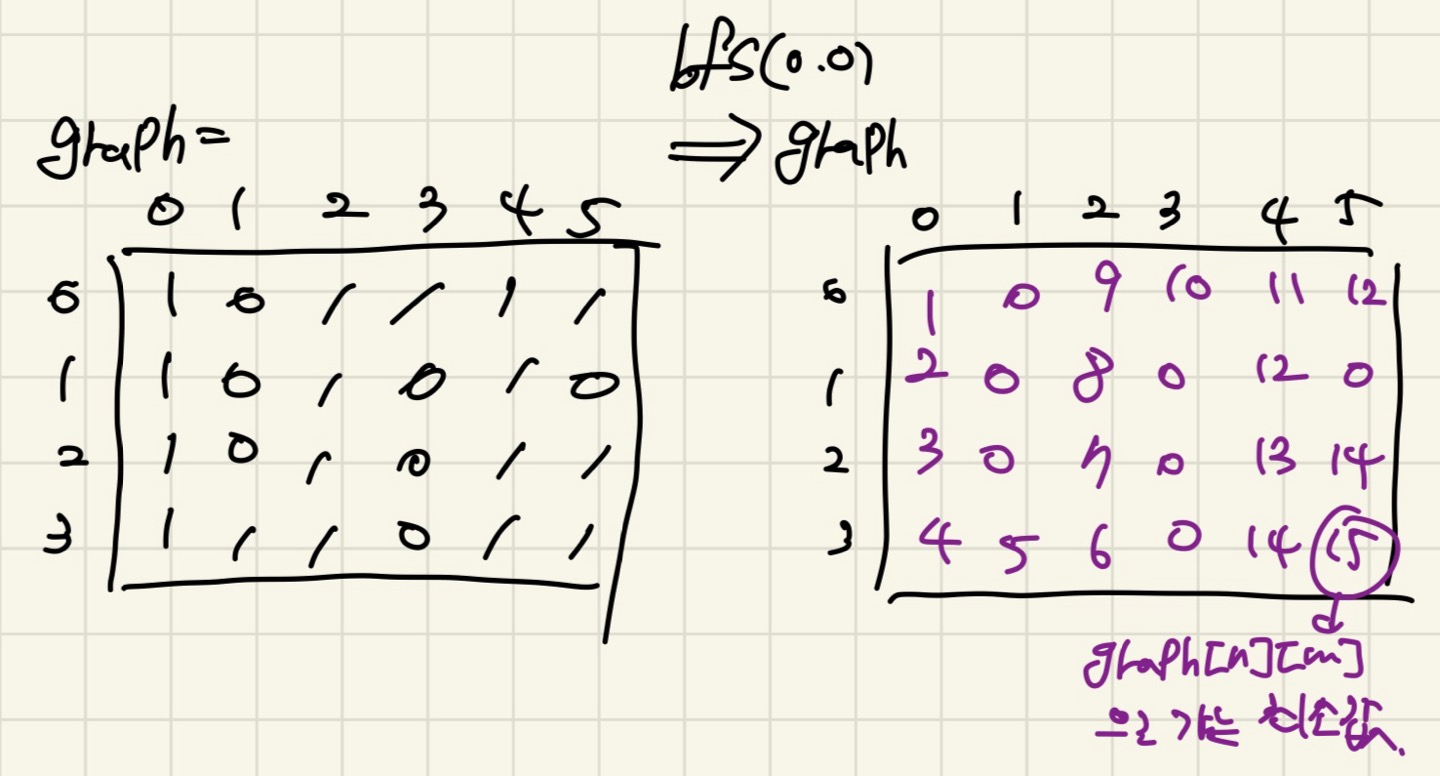 bfs(0.0)
graph=
⇒ graph
0 1 2 3 4 5
0 1 0 1 1 1 1
1 1 0 1 0 1 0
2 1 0 1 0 1 1
3 1 1 1 0 1 1
0 1 2 3 4 5
0 1 0 9 10 11 12
1 2 0 8 0 12 0
2 3 0 7 0 13 14
3 4 5 6 0 14 15
graph[n][m]
으로 가는 최소값.